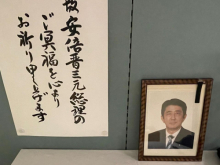 故 安倍晋三元総理の
ご冥福を心より
お祈り申し上げます